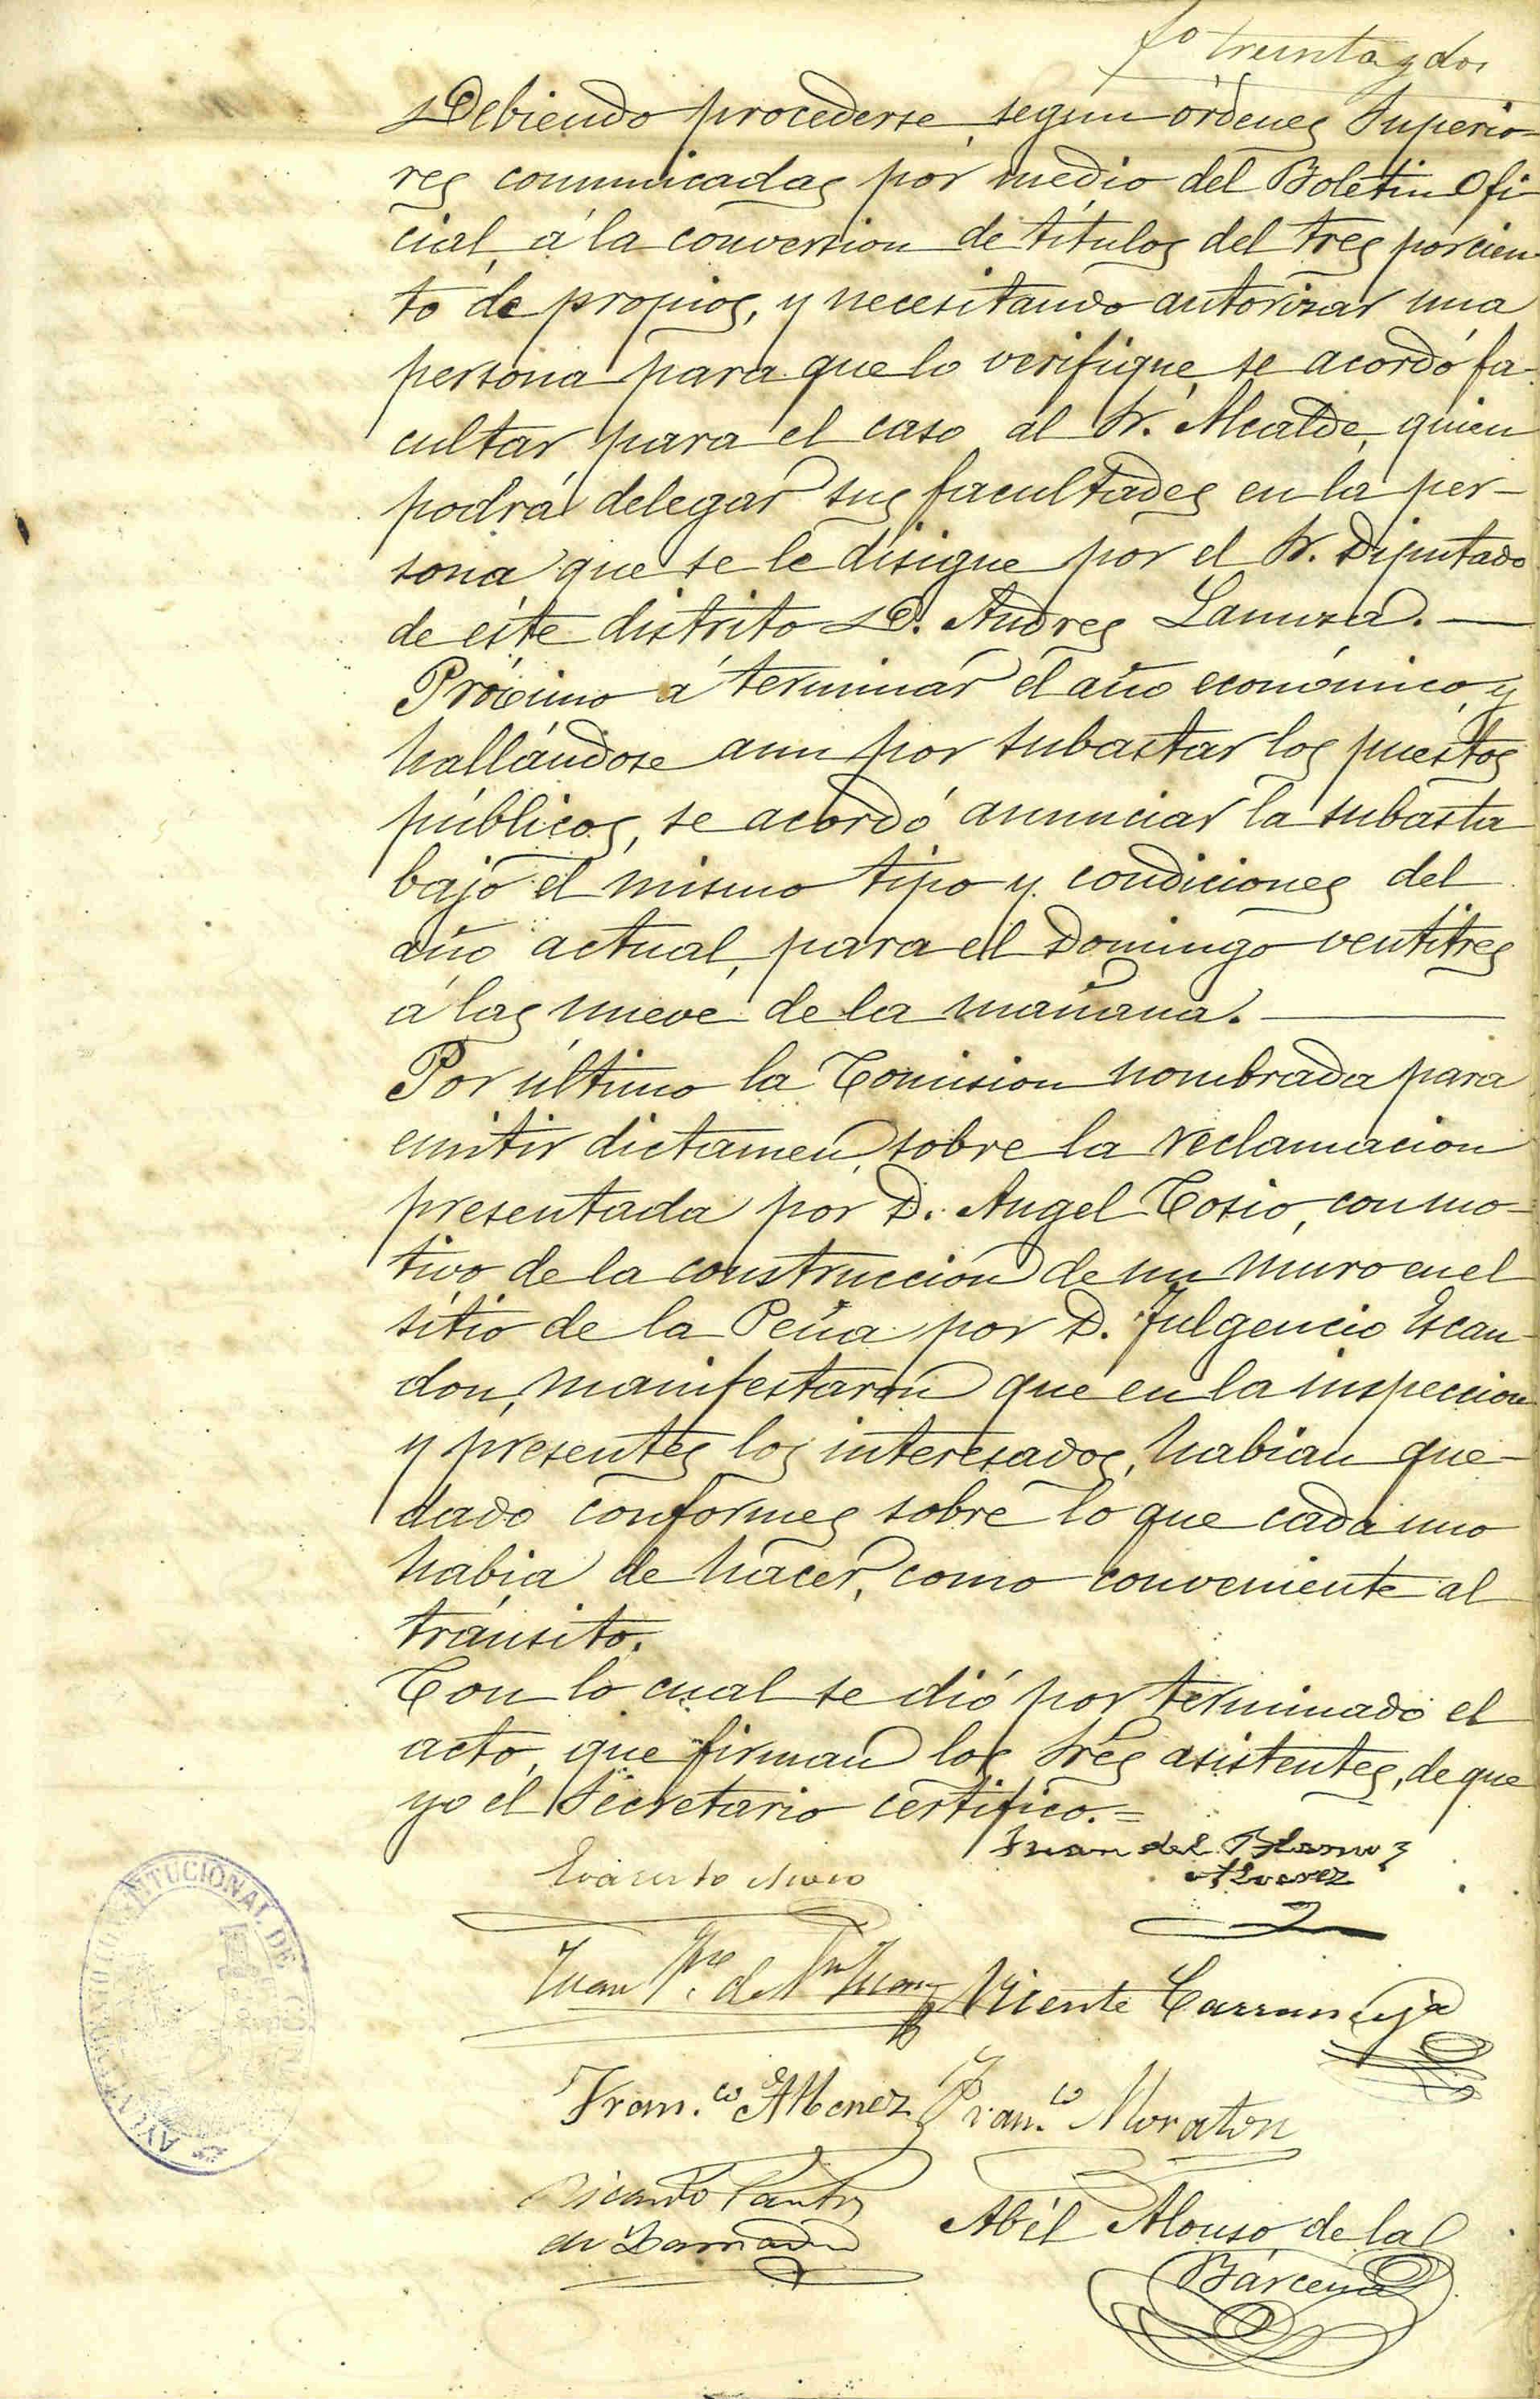 fo treinta y dos
Debiendo procederse, segun órdenes Superio-
res comunicadas por medio del Boletin Ofi-
cial, á la conversion de títulos del tres por cien-
to de propios, y necesitando autorizar una
persona para que lo verifique, se acordó fa-
cultar para el caso al Sr. Alcalde, quien
podrá delegar sus facultades en la per-
sona que se le disigne por el Sr. Diputado
de éste distrito D. Andres Lanuza.
Próximo á terminar el año económico, y
hallándose aun por subastar los puestos
públicos, se acordó anunciar la subasta
bajo el mismo tipo y condiciones del
año actual, para el Domingo ventitres
á las nueve de la mañana.
Por último la Comision nombrada para
emitir dictamen, sobre la reclamacion
presentada por D. Angel Cosio, con mo-
tivo de la construccion de un muro en el
sitio de la Peña por D. Fulgencio Escan-
don, manifestaron que en la inspeccion
y presentes los interesados, habian que-
dado conformes sobre lo que cada uno
habia de hacer, como conveniente al
tránsito.
Con lo cual se dió por terminado el
acto, que firman los Sres asistentes, de que
yo el Secretario certifico.=
Juan del
Alvarez
Evaristo
Juan
Vicente Carranceja
Fran.co Jimenez
Fran.co Moraton
Ricardo
de
Abél Alonso de la
Bárcena
AYUNTAMIENTO CONSTITUCIONAL DE